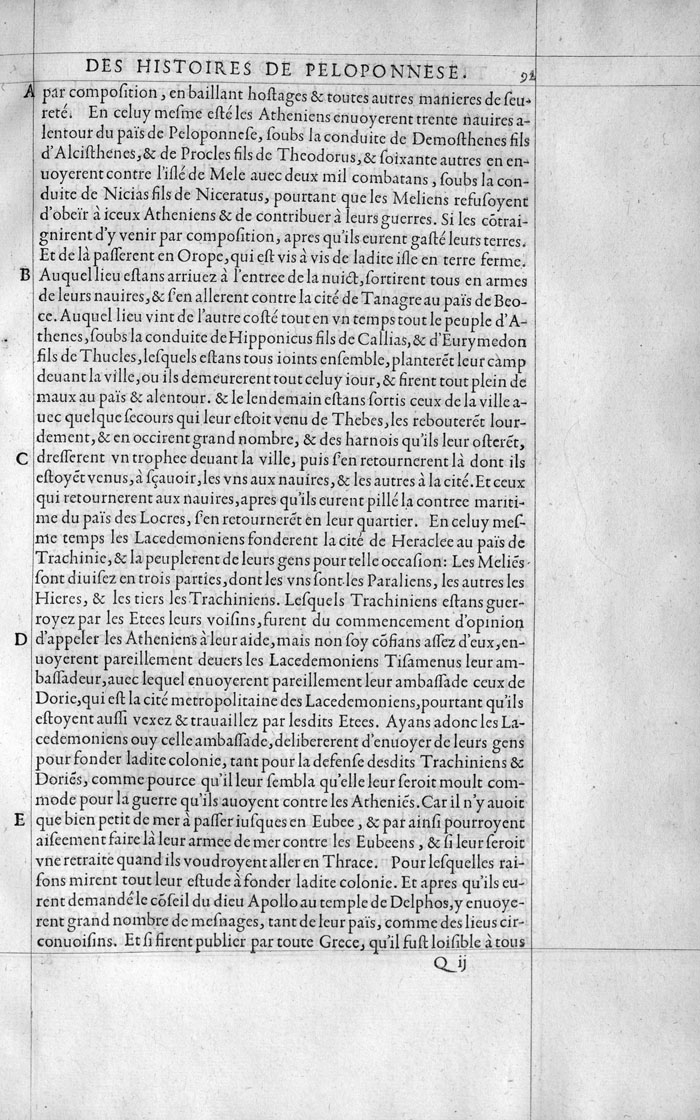 DES HISTOIRES DE PELOPONNESE. 92
A par composition, en baillant hostages & toutes autres manieres de seu-
reté. En celuy mesme esté les Atheniens enuoyerent trente nauires a-
lentour du païs de Peloponnese, soubs la conduite de Demosthenes fils
d'Alcisthenes, & de Procles fils de Theodorus, & soixante autres en en-
uoyerent contre l'isle de Mele auec deux mil combatans, soubs la con-
duite de Nicias fils de Niceratus, pourtant que les Meliens refusoyent
d'obeïr à iceux Atheniens & de contribuer à leurs guerres. Si les cõtrai-
gnirent d'y venir par composition, apres qu'ils eurent gasté leurs terres.
Et de là passerent en Orope, qui est vis à vis de ladite isle en terre ferme.
B Auquel lieu estans arriuez à l'entree de la nuict, sortirent tous en armes
de leurs nauires, & s'en allerent contre la cité de Tanagre au païs de Beo-
ce. Auquel lieu vint de l'autre costé tout en vn temps tout le peuple d'A-
thenes, soubs la conduite de Hipponicus fils de Callias, & d'Eurymedon
fils de Thucles, lesquels estans tous ioints ensemble, planterẽt leur camp
deuant la ville, ou ils demeurerent tout celuy iour, & firent tout plein de
maux au païs & alentour. & le lendemain estans sortis ceux de la ville a-
uec quelque secours qui leur estoit venu de Thebes, les rebouterẽt lour-
dement, & en occirent grand nombre, & des harnois qu'ils leur osterẽt,
C dresserent vn trophee deuant la ville, puis s'en retournerent là dont ils
estoyẽt venus, à sçauoir, les vns aux nauires, & les autres à la cité. Et ceux
qui retournerent aux nauires, apres qu'ils eurent pillé la contree mariti-
me du païs des Locres, s'en retournerẽt en leur quartier. En celuy mes-
me temps les Lacedemoniens fonderent la cité de Heraclee au païs de
Trachinie, & la peuplerent de leurs gens pour telle occasion: Les Meliẽs
sont diuisez en trois parties, dont les vns sont les Paraliens, les autres les
Hieres, & les tiers les Trachiniens. Lesquels Trachiniens estans guer-
royez par les Etees leurs voisins, furent du commencement d'opinion
D d'appeler les Atheniens à leur aide, mais non soy cõfians assez d'eux, en-
uoyerent pareillement deuers les Lacedemoniens Tisamenus leur am-
bassadeur, auec lequel enuoyerent pareillement leur ambassade ceux de
Dorie, qui est la cité metropolitaine des Lacedemoniens, pourtant qu'ils
estoyent aussi vexez & trauaillez par lesdits Etees. Ayans adonc les La-
cedemoniens ouy celle ambassade, delibererent d'enuoyer de leurs gens
pour fonder ladite colonie, tant pour la defense desdits Trachiniens &
Doriẽs, comme pource qu'il leur sembla qu'elle leur seroit moult com-
mode pour la guerre qu'ils auoyent contre les Atheniẽs. Car il n'y auoit
E que bien petit de mer à passer iusques en Eubee, & par ainsi pourroyent
aiseement faire là leur armee de mer contre les Eubeens, & si leur seroit
vne retraite quand ils voudroyent aller en Thrace. Pour lesquelles rai-
sons mirent tout leur estude à fonder ladite colonie. Et apres qu'ils eu-
rent demandé le cõseil du dieu Apollo au temple de Delphos, y enuoye-
rent grand nombre de mesnages, tant de leur païs, comme des lieus cir-
conuoisins. Et si firent publier par toute Grece, qu'il fust loisible à tous
Q ij